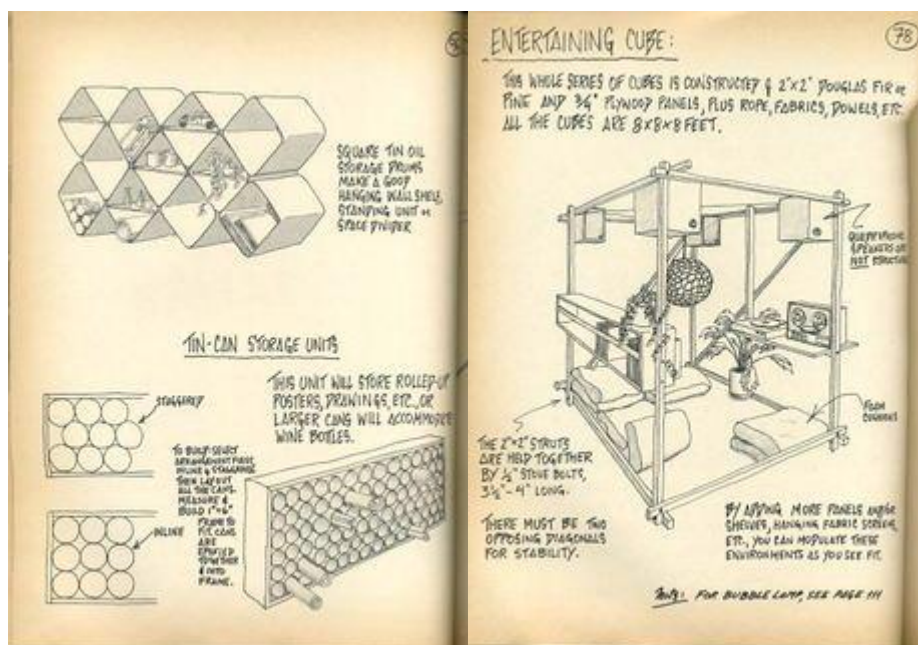 SQUARE TIN OIL
STORAGE DRUMS
MAKE A GOOD
HANGING WALL SHELF,
STANDING UNIT or
SPACE DIVIDER
TIN-CAN STORAGE UNITS
STAGGERED
THIS UNIT WILL STORE ROLLED-UP
POSTERS, DRAWINGS, ETC., OR
LARGER CANS WILL ACCOMMODATE
WINE BOTTLES.
TO BUILD: SELECT
ARRANGEMENT FIRST,
INLINE or STAGGERED
THEN LAYOUT
ALL THE CANS.
MEASURE &
BUILD 1"×6"
FRAME TO
FIT. CANS
ARE
EPOXIED
TOGETHER
& INTO
FRAME.
INLINE
ENTERTAINING CUBE:
78
THIS WHOLE SERIES OF CUBES IS CONSTRUCTED of 2"×2" DOUGLAS FIR or
PINE AND 3/4" PLYWOOD PANELS, PLUS ROPE, FABRICS, DOWELS, ETC.
ALL THE CUBES ARE 8×8×8 FEET.
SPEAKERS OR
NOT STRUCTURAL
FOAM
CUSHIONS
THE 2"×2" STRUTS
ARE HELD TOGETHER
BY 1/4" STOVE BOLTS,
3 1/2"-4" LONG.
THERE MUST BE TWO
OPPOSING DIAGONALS
FOR STABILITY.
BY ADDING MORE PANELS and/or
SHELVES, HANGING FABRIC SCREENS,
ETC., YOU CAN MODULATE THESE
ENVIRONMENTS AS YOU SEE FIT.
FOR BUBBLE LAMP, SEE PAGE 111